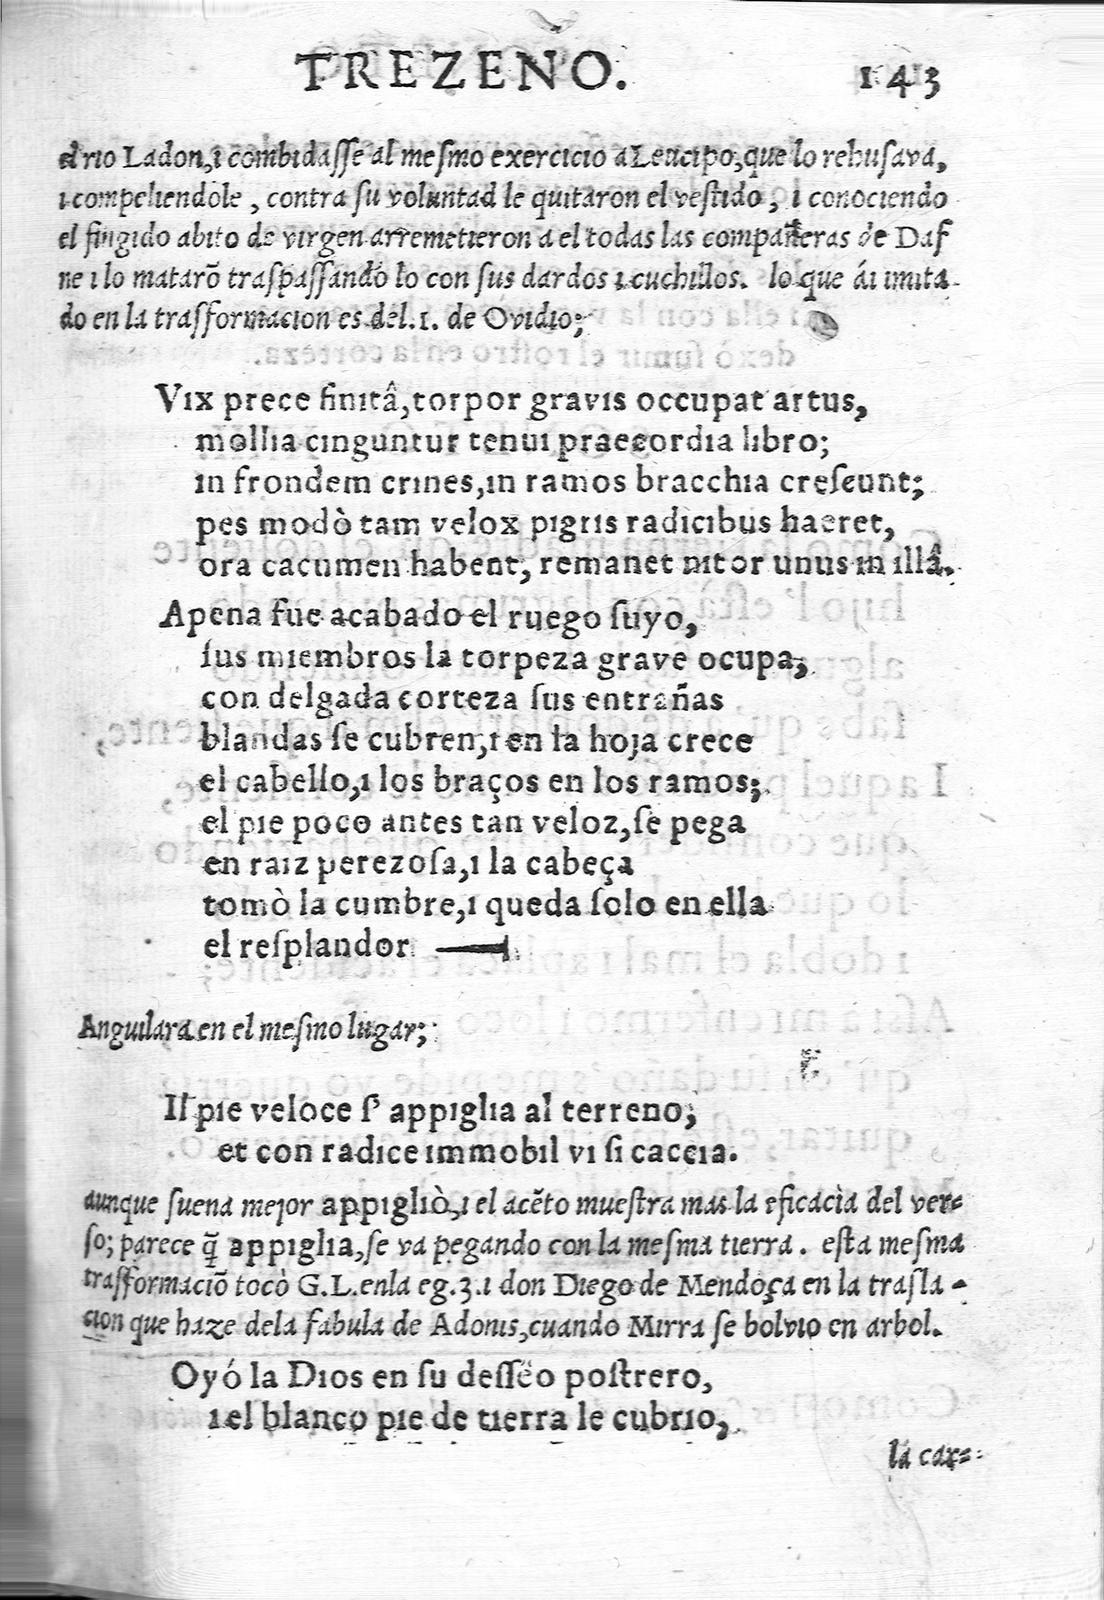 TREZENO. 143
el rio Ladon, i combidasse al mesmo exercicio a Leucipo, que lo rehusava,
i compeliendole, contra su voluntad le quitaron el vestido, i conociendo
el fingido abito de virgen arremetieron a el todas las compañeras de Daf
ne i lo matarõ traspassando lo con sus dardos i cuchillos. lo que ái imita-
do en la trasformacion es del. 1. de Ovidio;
Vix prece finitâ, torpor gravis occupat artus,
mollia cinguntur tenui praecordia libro;
in frondem crines, in ramos bracchia crescunt;
pes modò tam velox pigris radicibus haeret,
ora cacumen habent, remanet nitor unus in illâ.
Apena fue acabado el ruego suyo,
sus miembros la torpeza grave ocupa,
con delgada corteza sus entrañas
blandas se cubren, i en la hoja crece
el cabello, i los braços en los ramos;
el pie poco antes tan veloz, se pega
en raiz perezosa, i la cabeça
tomò la cumbre, i queda solo en ella
el resplandor
Anguilara en el mesmo lugar;
Il pie veloce s' appiglia al terreno;
et con radice immobil vi si caccia.
aunque suena mejor appigliò, i el acẽto muestra mas la eficacia del ver-
so; parece q̃ appiglia, se va pegando con la mesma tierra. esta mesma
trasformaciõ tocò G. L. en la eg. 3. i don Diego de Mendoça en la trasla-
cion que haze de la fabula de Adonis, cuando Mirra se bolvio en arbol.
Oyó la Dios en su desseo postrero,
i el blanco pie de tierra le cubrio,
la car-